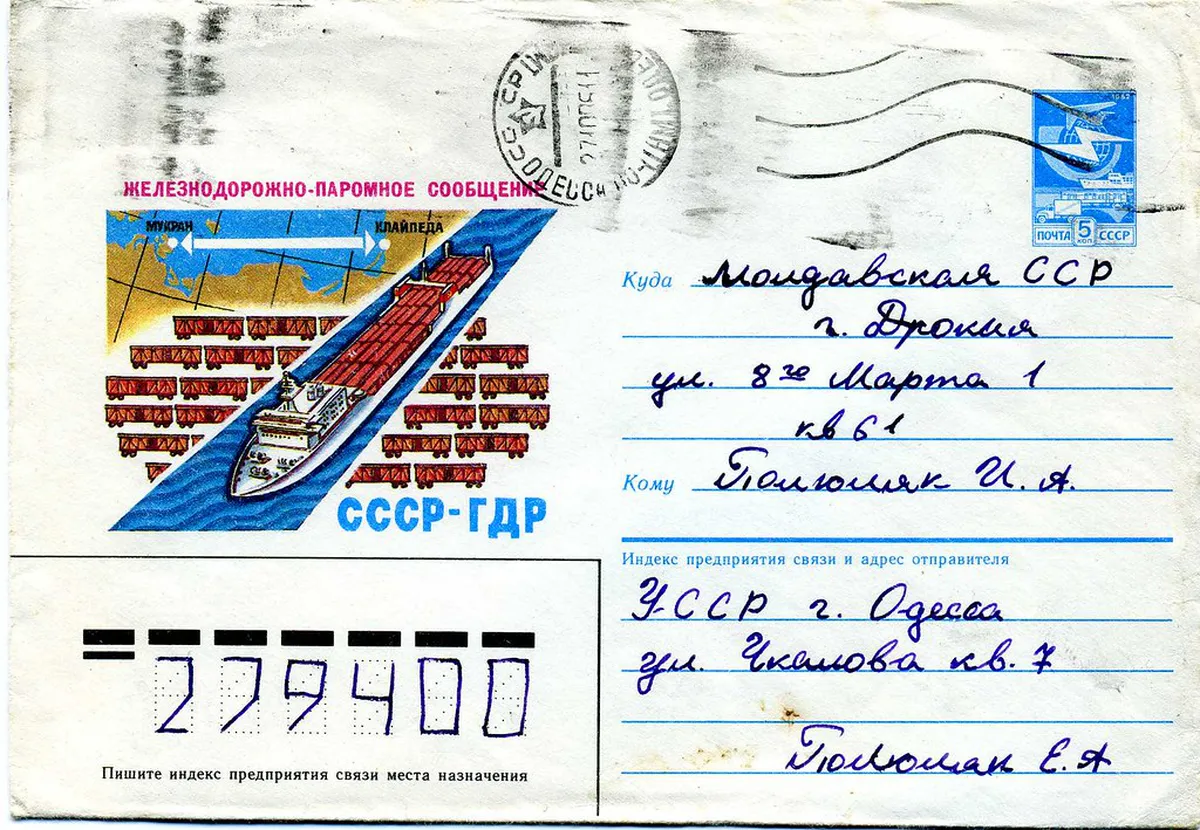 СССР
ОДЕССА
ЖЕЛЕЗНОДОРОЖНО-ПАРОМНОЕ СООБЩЕНИЕ
МУКРАН
КЛАЙПЕДА
СССР-ГДР
ПОЧТА 5 КОП СССР
Куда Молдавская ССР
г. Дрокия
ул. 8го Марта 1
кв 61
Кому Полюмяк И. А.
Индекс предприятия связи и адрес отправителя
УССР г. Одесса
ул. Чкалова кв. 7
Полюмяк Е. А
279400
Пишите индекс предприятия связи места назначения